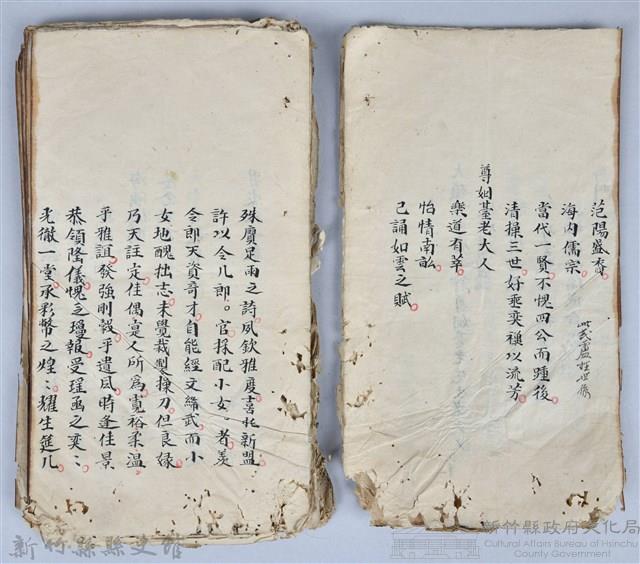 范陽
此 盧姓世
海內儒宗
當代一賢不愧四公而踵後
清操三世好乘奕穗以流芳
尊姻臺老大人
樂道有莘
怡情南畝
已誦如雲之賦
殊賡足雨之詩夙欽雅度喜托新盟
許以令几郎。官採配小女〻者羨
令郎天資奇才自能經文緯武而小
女地醜拙志未覺裁製操刀但良緣
乃天註定佳偶寔人所為寬裕柔溫
乎雅誼發強剛毅乎遺風時逢佳景
恭領隆儀愧乏瓊報受瑶函之奕:
光徹一堂承彩幣之煌:耀生筵几
新竹縣縣史館
新竹縣政府文化局
Cultural Affairs Bureau of Hsinchu
County Government